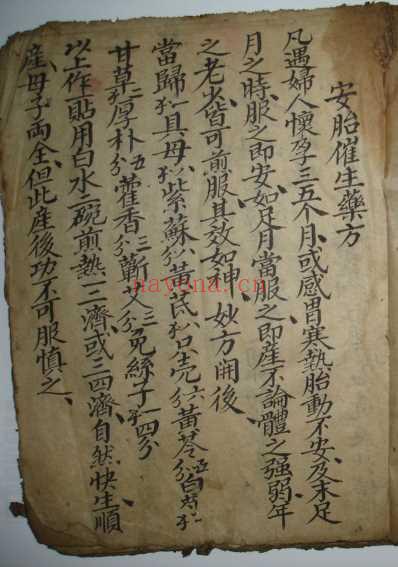 安胎催生藥方
凡遇婦人懷孕三五个月或感冒寒熱胎動不安及未足
月之時服之即安如足月當服之即產不論體之強弱年
之老少皆可煎服其效如神妙方開後
當歸 貝母 紫蘇 黃芪 只壳 黃芩 白芍
甘草 厚朴五分 藿香三分 蘄艾三分 免絲子一 四分
以上作一貼用白水二碗煎熱一二濟或三四濟自然快生順
產母子両全但此產後切不可服慎之
nayona.cn